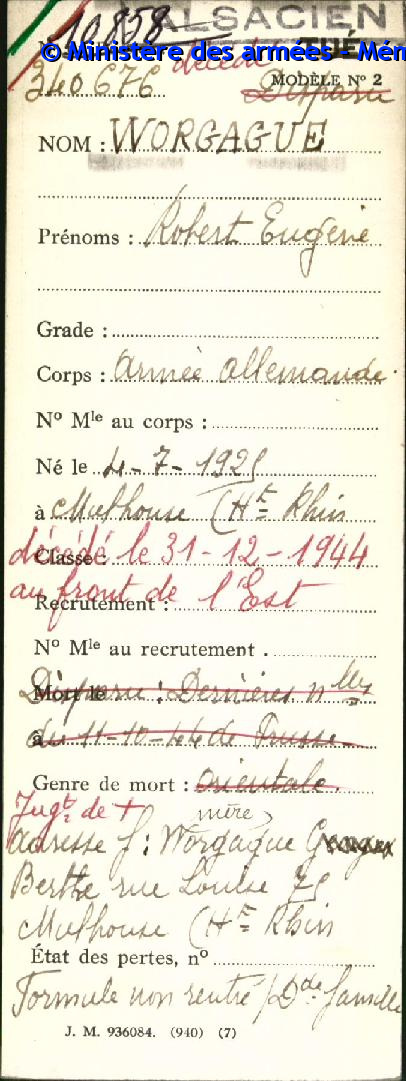 10.858 ALSACIEN
© Ministère des armées - Mém
décédé TUÉ
MODÈLE Nº 2
340676 Disparu
NOM : WORGAGUE
Prénoms : Robert Eugène
Grade :
Corps : Armée allemande.
Nº Mle au corps :
Né le 4-7-1925
à Mulhouse (Ht Rhin
Classe : décédé le 31-12-1944
Recrutement : au front de l'Est
Nº Mle au recrutement .
Mort le Disparu : Dernières nlles
à du 11-10-44 de Prusse
Genre de mort : Orientale.
Jugt de + mère
adresse f : Worgague
Berthe rue Louise 75
Mulhouse (Ht Rhin
État des pertes, nº
Formule non rentré / Dde famille
J. M. 936084. (940) (7)